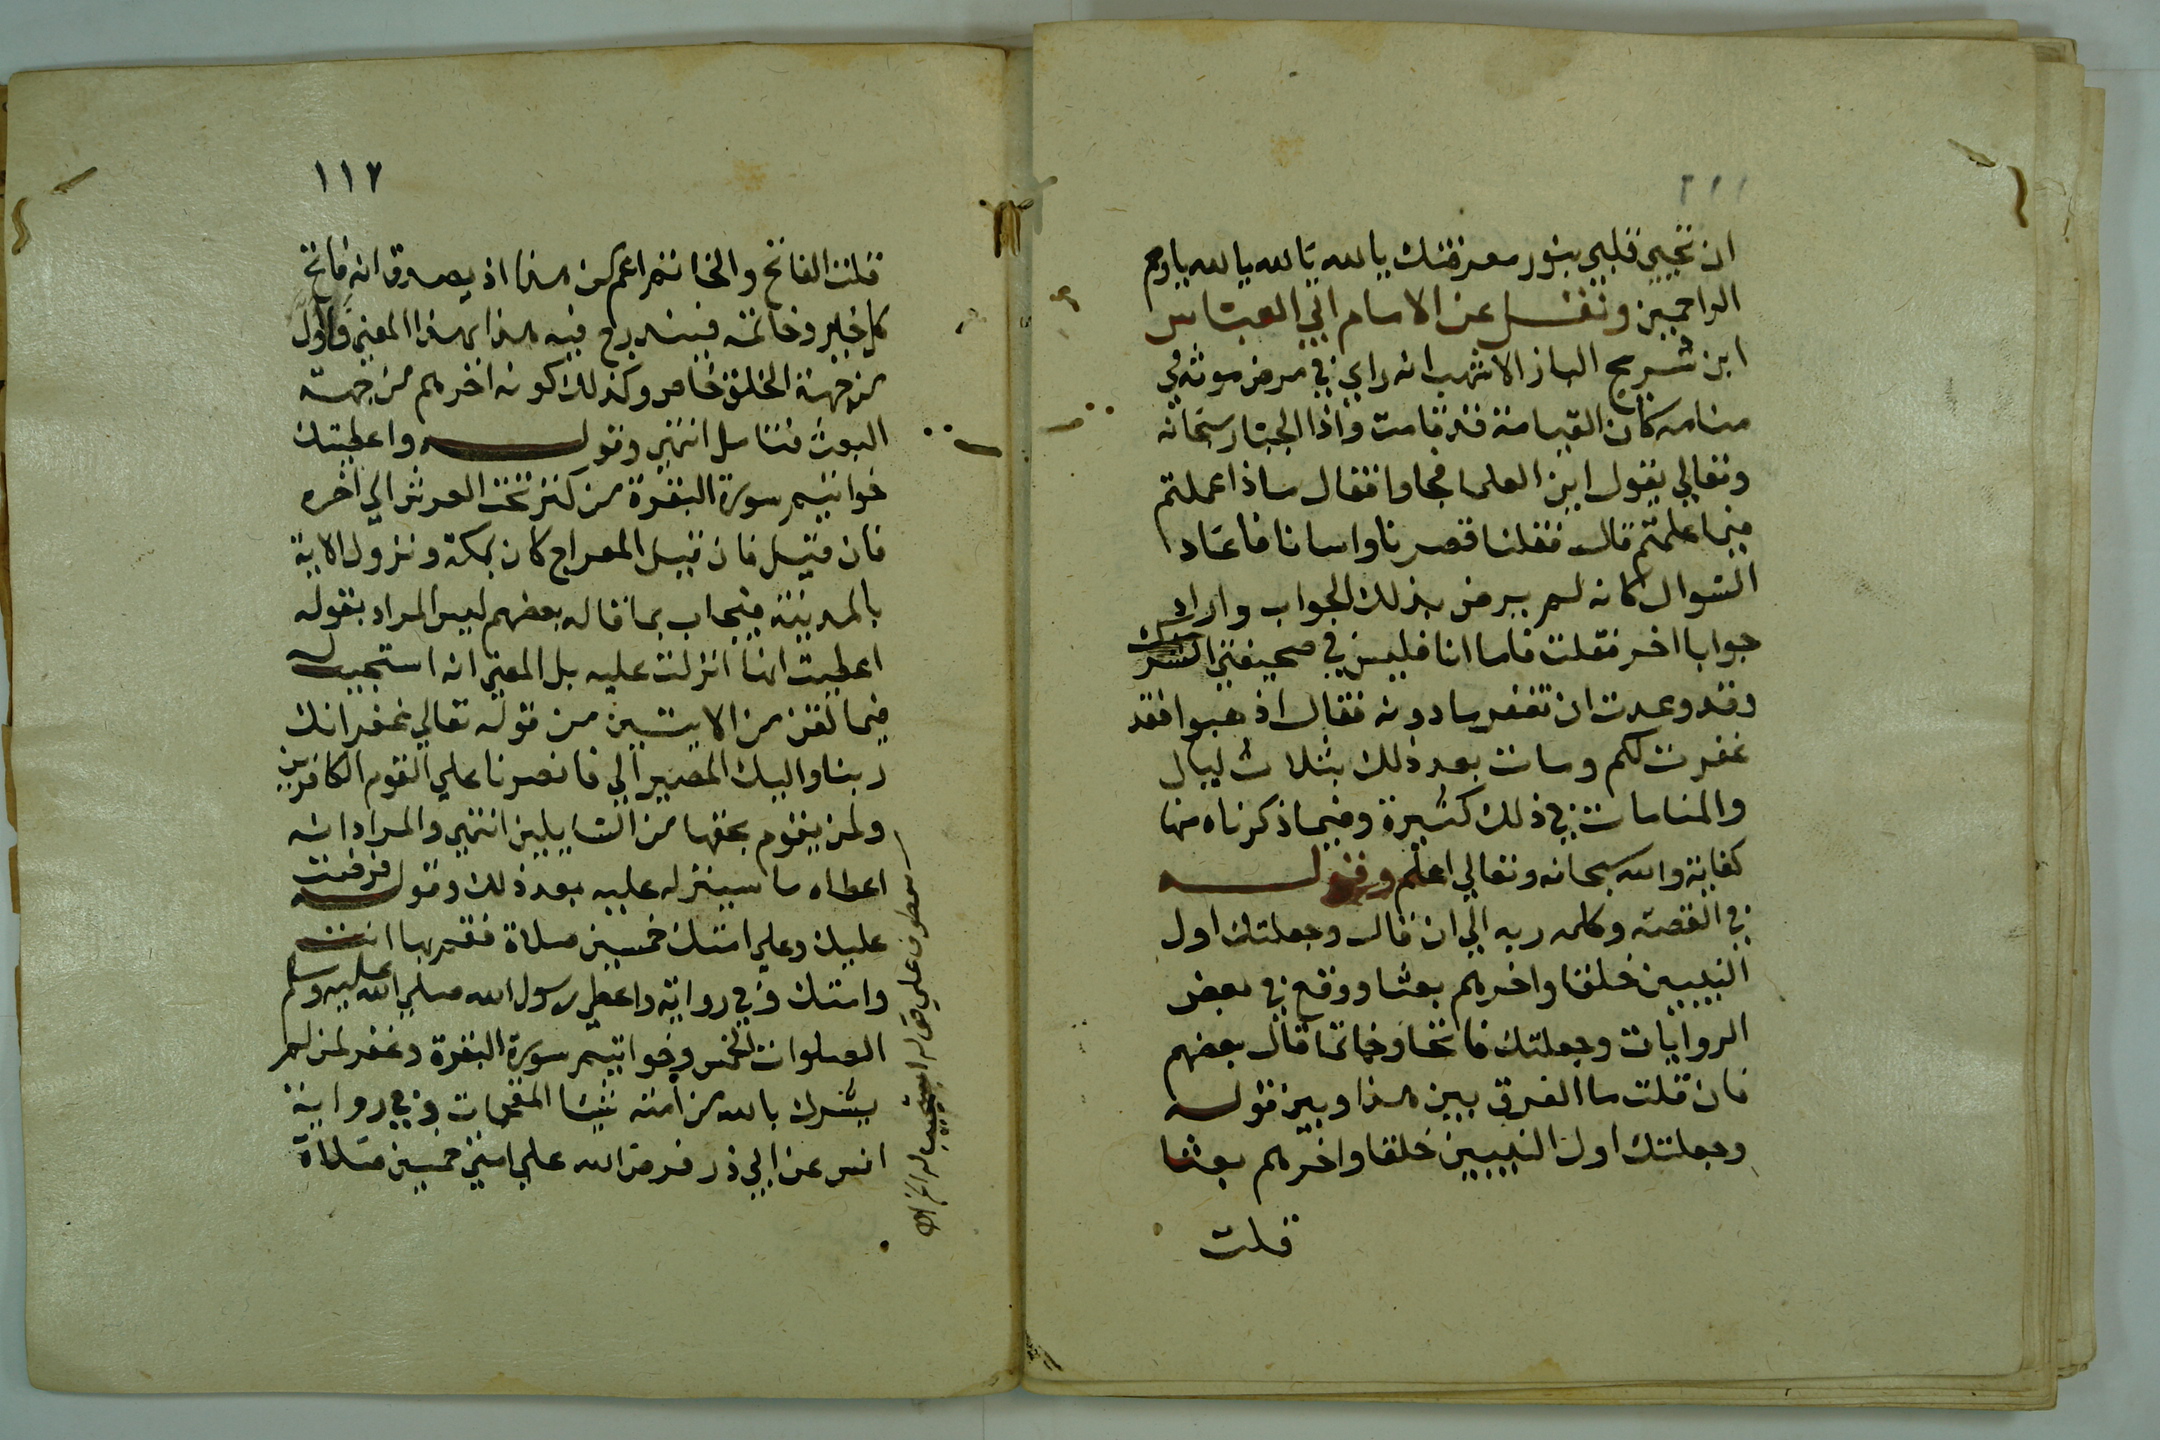 ان تحيي قلبي بنور معرفتك يا الله يا الله يا الله يا ارحم
الراحمين ونقل عن الامام ابي العباس
ابن شريح الباز الاشهب انه راي في مرض موته في
منامه كان القيامة قد قامت واذا الجبار سبحانه
وتعالي يقول اين العلما فجاوا فقال ماذا عملتم
فيما علمتم قال فقلنا قصرنا واسانا فاعاد
السوال كانه لم يرض بذلك الجواب واراد
جوابا اخر فقلت فاما انا فليس في صحيفتي الشرك
وقد وعدت ان تغفر ما دونه فقال اذهبوا فقد
غفرت لكم ومات بعد ذلك بثلاث ليال
والمنامات في ذلك كثيرة وفيما ذكرناه منها
كفاية والله سبحانه وتعالي اعلم وقوله
في القصة وكلمه ربه الي ان قال وجعلتك اول
النبيين خلقا واخرهم بعثا ووقع في بعض
الروايات وجعلتك فاتحا وخاتما قال بعضهم
فان قلت ما الفرق بين هذا وبين قوله
وجعلتك اول النبيين خلقا واخرهم بعثا
قلت
١١٢
قلت الفاتح والخاتم اعم من هذا اذ يصدق انه فاتح
كل خير وخاتمه فيندرج فيه هذا بهذا المعني واول
من جهة الخلق خاص وكذلك كونه اخرهم من جهة
البعث فتامل انتهي وقوله واعطيتك
خواتيم سورة البقرة من كنز تحت العرش الي اخره
فان قيل فان قيل المعراج كان بمكة ونزول الاية
بالمدينة فيجاب بما قاله بعضهم ليس المراد بقوله
اعطيت انها انزلت عليه بل المعني انه استجيب له
فيما لقن من الايتين من قوله تعالي غفرانك
ربنا واليك المصير الي فانصرنا علي القوم الكافرين
ولمن يقوم بحقها من السايلين انتهي والمراد انه
اعطاه ما سينزله عليه بعد ذلك وقوله فرضت
عليك وعلي امتك خمسين صلاة فقم بها انت
وامتك وفي رواية واعطي رسول الله صلي الله عليه وسلم
الصلوات الخمس وخواتيم سورة البقرة وغفر لمن لم
يشرك بالله من امته شيئا المقحمات وفي رواية
انس عن ابي ذر فرض الله علي امتي خمسين صلاة
معطوف علي قوله استجيب له الخ